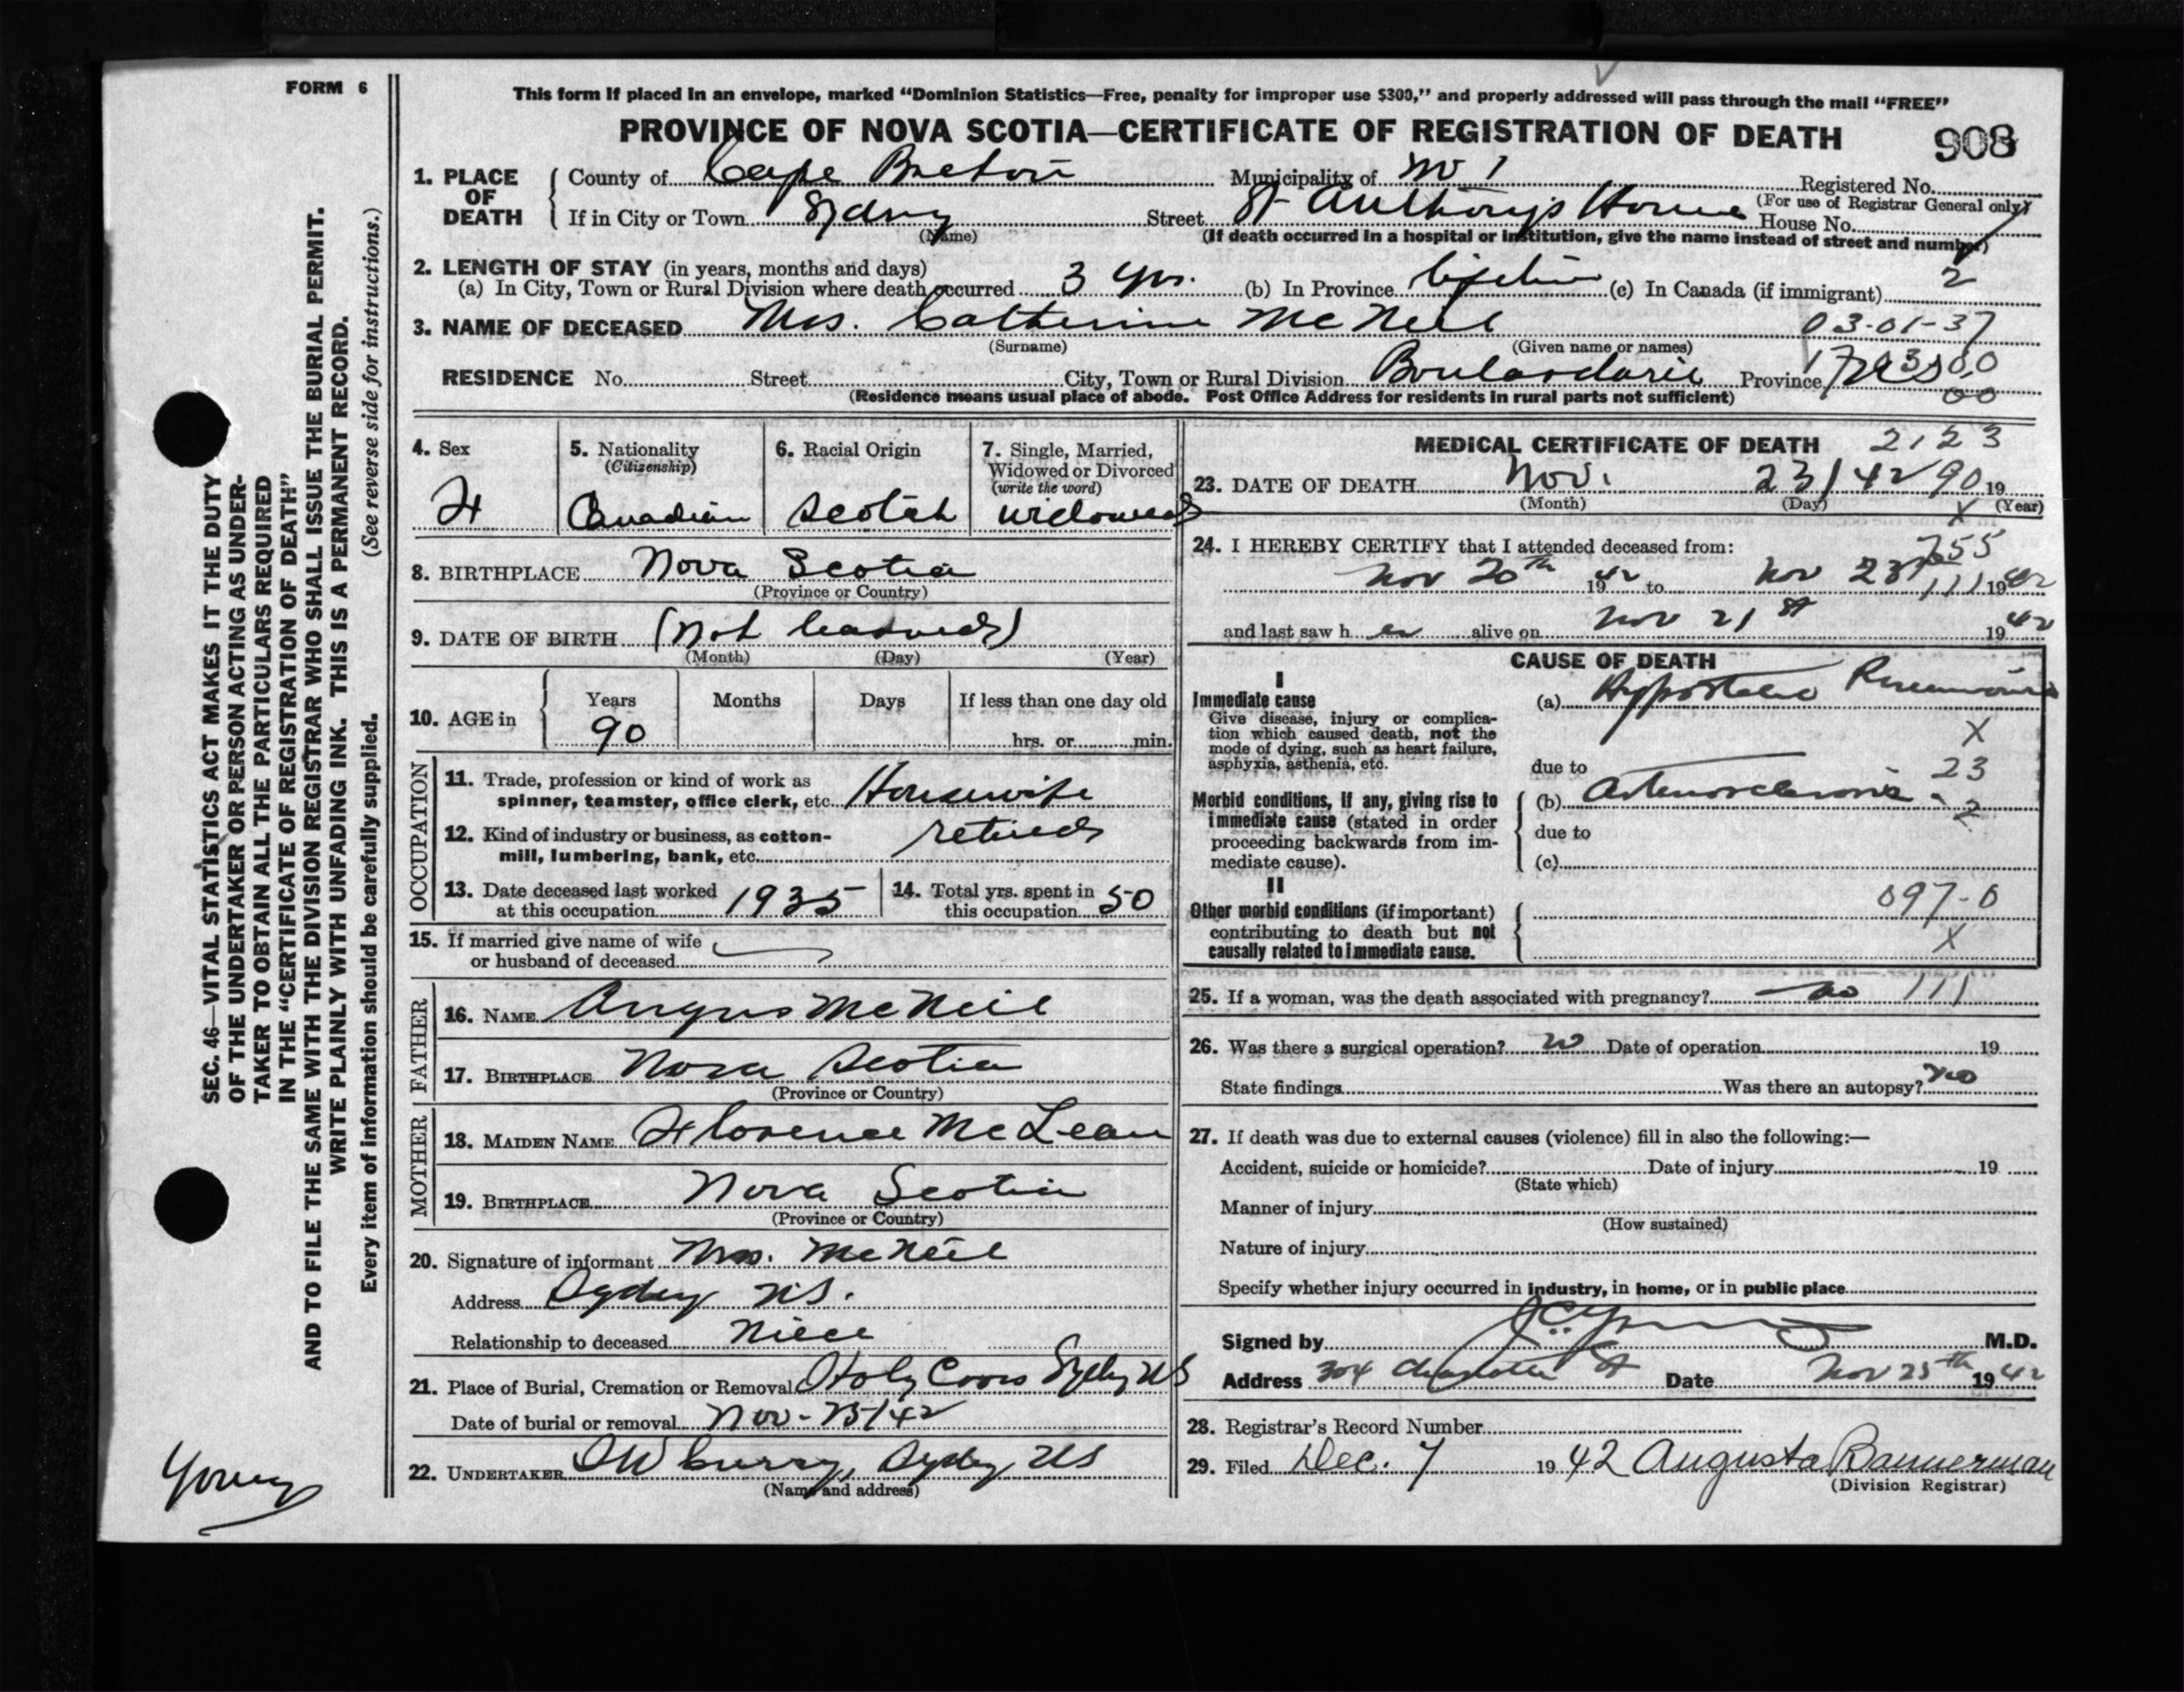 FORM 6
This form if placed in an envelope, marked “Dominion Statistics—Free, penalty for improper use $300,” and properly addressed will pass through the mail “FREE”
PROVINCE OF NOVA SCOTIA—CERTIFICATE OF REGISTRATION OF DEATH
908
1. PLACE OF DEATH
County of Cape Breton Municipality of No 1 Registered No.
(For use of Registrar General only)
If in City or Town Sydney Street St Anthony's Home House No.
(Name) (If death occurred in a hospital or institution, give the name instead of street and number)
2. LENGTH OF STAY (in years, months and days)
(a) In City, Town or Rural Division where death occurred 3 yrs. (b) In Province lifetime (c) In Canada (if immigrant) 2
3. NAME OF DECEASED Mrs. Catherine McNeil 03-01-37
(Surname) (Given name or names)
RESIDENCE No. Street City, Town or Rural Division Boulardarie Province NS
00
(Residence means usual place of abode. Post Office Address for residents in rural parts not sufficient)
4. Sex F
5. Nationality (Citizenship) Canadian
6. Racial Origin Scotch
7. Single, Married, Widowed or Divorced (write the word) widowed
8. BIRTHPLACE Nova Scotia
(Province or Country)
9. DATE OF BIRTH (Not learned)
(Month) (Day) (Year)
10. AGE in Years 90 Months Days If less than one day old hrs. or min.
OCCUPATION
11. Trade, profession or kind of work as spinner, teamster, office clerk, etc. Housewife
12. Kind of industry or business, as cotton-mill, lumbering, bank, etc. retired
13. Date deceased last worked at this occupation 1935
14. Total yrs. spent in this occupation 50
15. If married give name of wife or husband of deceased
FATHER
16. NAME Angus McNeil
17. BIRTHPLACE Nova Scotia
(Province or Country)
MOTHER
18. MAIDEN NAME Florence McLean
19. BIRTHPLACE Nova Scotia
(Province or Country)
20. Signature of informant Mrs. McNeil
Address Sydney NS.
Relationship to deceased Niece
21. Place of Burial, Cremation or Removal Holy Cross Sydney NS
Date of burial or removal Nov - 25/42
22. UNDERTAKER Curry, Sydney NS
(Name and address)
MEDICAL CERTIFICATE OF DEATH 2123
23. DATE OF DEATH Nov. 23/42 90 19
(Month) (Day) (Year)
X
24. I HEREBY CERTIFY that I attended deceased from:
755
Nov 20th 1942 to Nov 23 111 1942
and last saw her alive on Nov 21st 1942
CAUSE OF DEATH
I
Immediate cause
Give disease, injury or complication which caused death, not the mode of dying, such as heart failure, asphyxia, asthenia, etc.
(a) Hypostatic Pneumonia
X
due to 23
Morbid conditions, if any, giving rise to immediate cause (stated in order proceeding backwards from immediate cause).
(b) Arteriosclerosis - 2
due to
(c)
II
Other morbid conditions (if important) contributing to death but not causally related to immediate cause.
097-0
X
25. If a woman, was the death associated with pregnancy? no 111
26. Was there a surgical operation? no Date of operation 19
State findings Was there an autopsy? no
27. If death was due to external causes (violence) fill in also the following:—
Accident, suicide or homicide? Date of injury 19
(State which)
Manner of injury
(How sustained)
Nature of injury
Specify whether injury occurred in industry, in home, or in public place
Signed by M.D.
Address 304 Charlotte St Date Nov 25th 1942
28. Registrar's Record Number
29. Filed Dec. 7 1942 Augusta Bannerman
(Division Registrar)
SEC. 46—VITAL STATISTICS ACT MAKES IT THE DUTY
OF THE UNDERTAKER OR PERSON ACTING AS UNDER-
TAKER TO OBTAIN ALL THE PARTICULARS REQUIRED
IN THE “CERTIFICATE OF REGISTRATION OF DEATH”
AND TO FILE THE SAME WITH THE DIVISION REGISTRAR WHO SHALL ISSUE THE BURIAL PERMIT.
WRITE PLAINLY WITH UNFADING INK. THIS IS A PERMANENT RECORD.
Every item of information should be carefully supplied. (See reverse side for instructions.)
Young